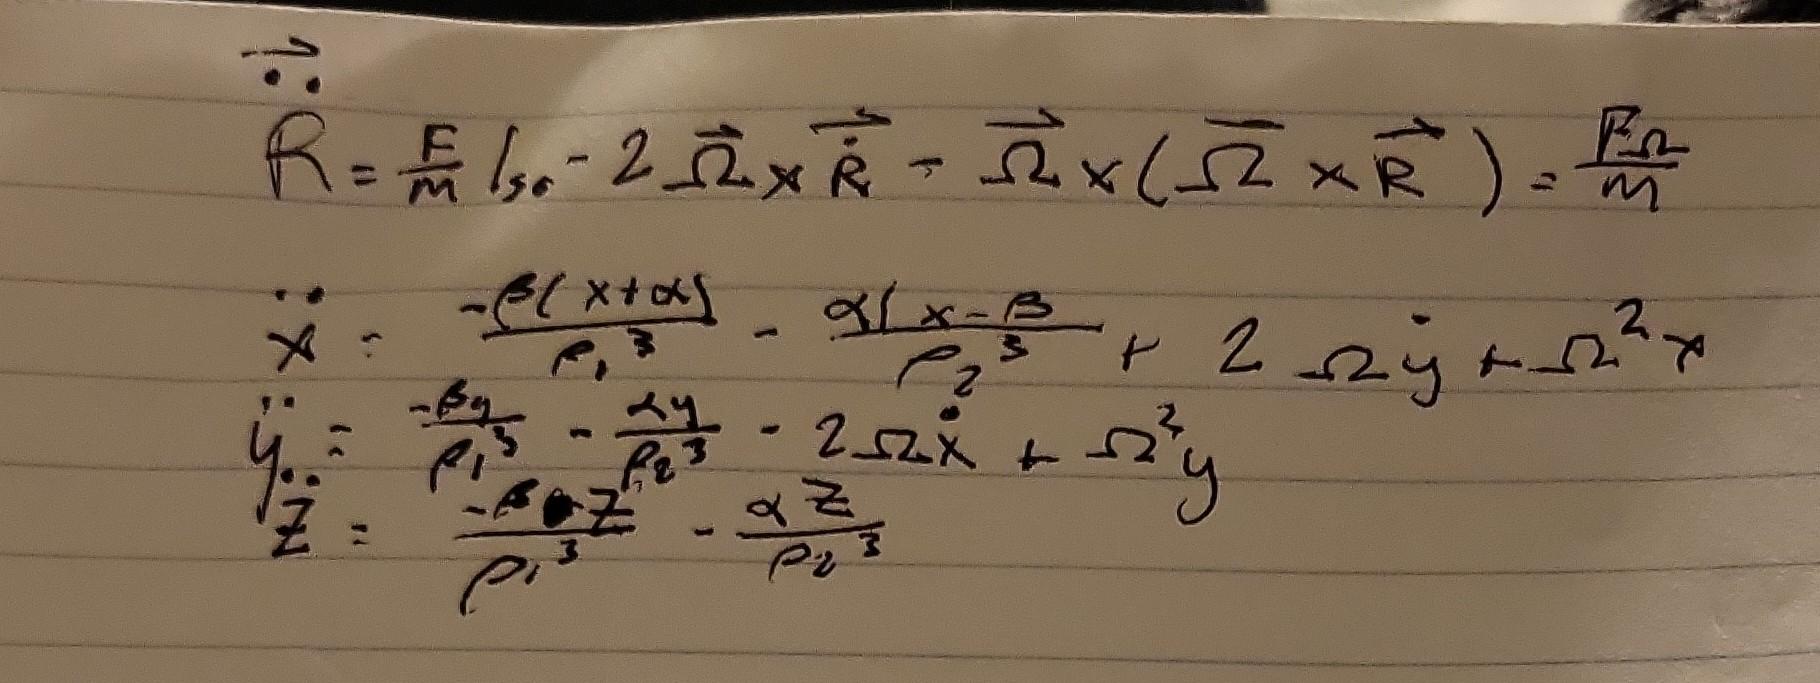 R⃗̈ = F/m |₅₀ - 2 Ω⃗ × R⃗̇ - Ω⃗ × (Ω⃗ × R⃗) = F_Ω/m
ẍ = -β(x+α)/ρ₁³ - α(x-β/ρ₂³ + 2Ωẏ + Ω²x
ÿ = -βy/ρ₁³ - αy/ρ₂³ - 2Ωẋ + Ω²y
z̈ = -βz/ρ₁³ - αz/ρ₂³